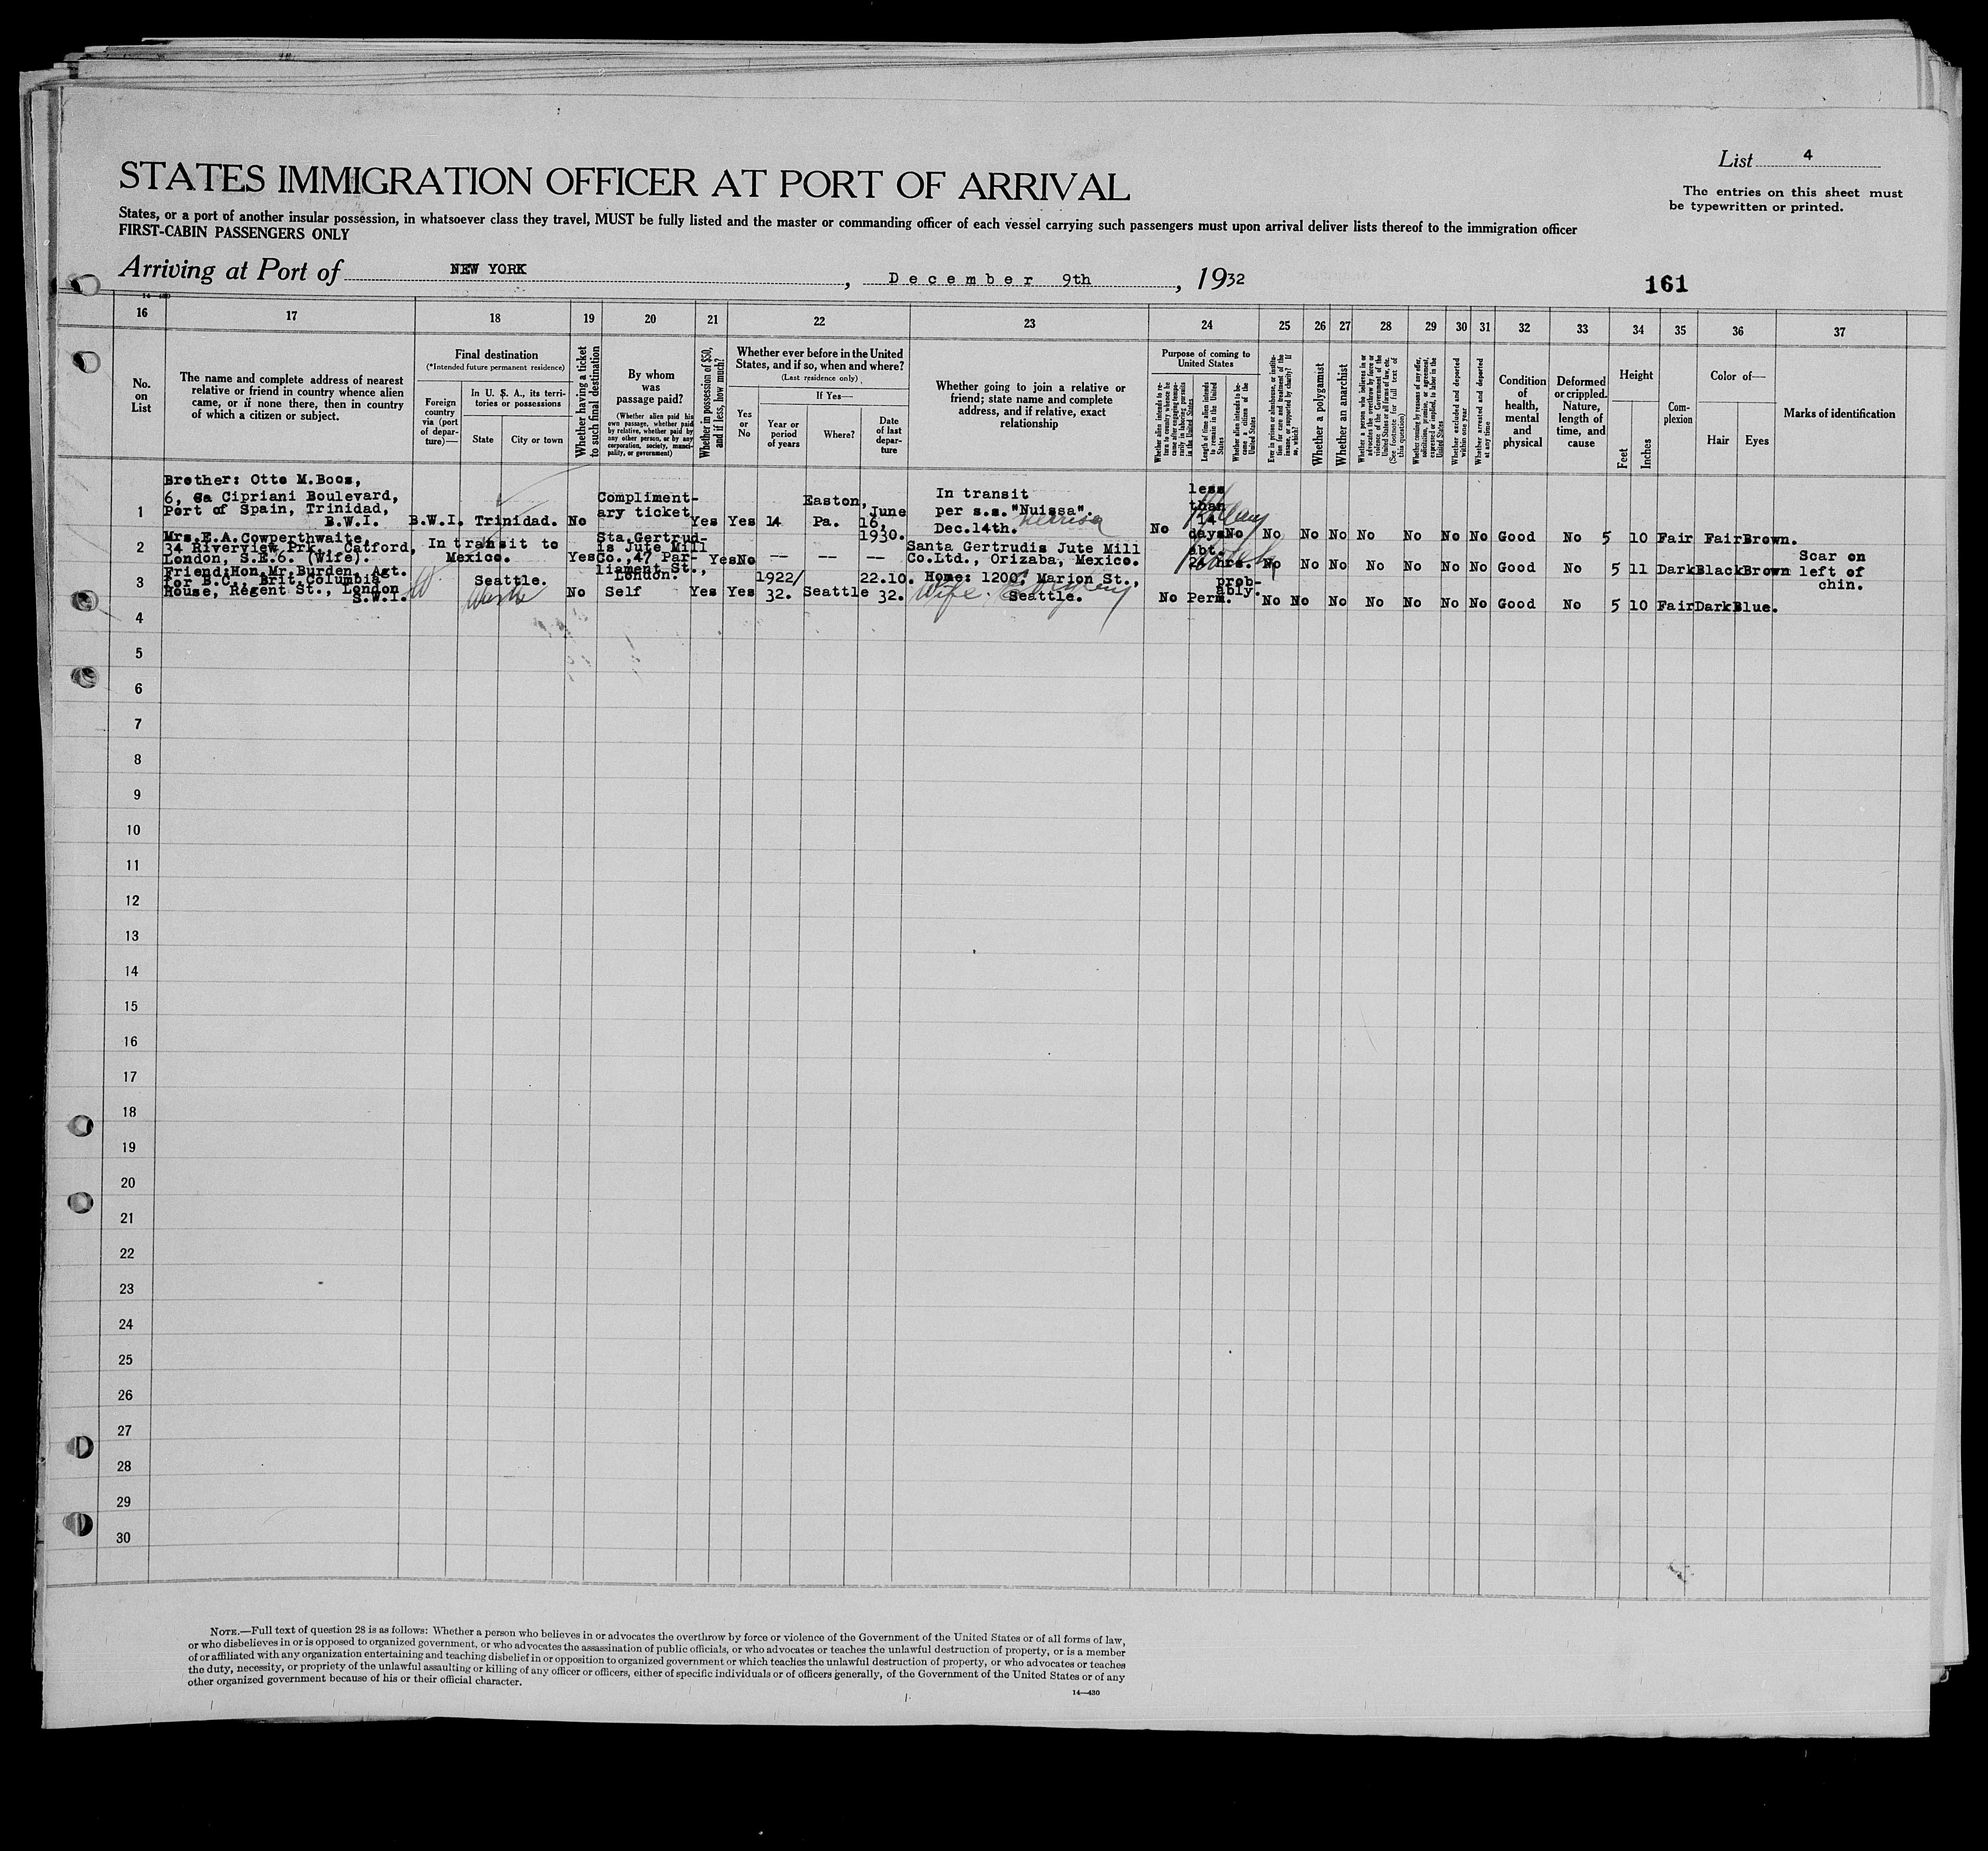 List 4
STATES IMMIGRATION OFFICER AT PORT OF ARRIVAL
The entries on this sheet must
be typewritten or printed.
States, or a port of another insular possession, in whatsoever class they travel, MUST be fully listed and the master or commanding officer of each vessel carrying such passengers must upon arrival deliver lists thereof to the immigration officer
FIRST-CABIN PASSENGERS ONLY
Arriving at Port of NEW YORK, December 9th, 1932
161
14-430
16 17 18 19 20 21 22 23 24 25 26 27 28 29 30 31 32 33 34 35 36 37
No.
on
List
The name and complete address of nearest
relative or friend in country whence alien
came, or if none there, then in country
of which a citizen or subject.
Final destination
(*Intended future permanent residence)
Foreign
country
via (port
of depar-
ture)—
In U. S. A., its terri-
tories or possessions
State
City or town
Whether having a ticket
to such final destination
By whom
was
passage paid?
(Whether alien paid his
own passage, whether paid
by relative, whether paid by
any other person, or by any
corporation, society, munici-
pality, or government)
Whether in possession of $50,
and if less, how much?
Whether ever before in the United
States, and if so, when and where?
(Last residence only)
Yes
or
No
If Yes—
Year or
period
of years
Where?
Date
of last
depar-
ture
Whether going to join a relative or
friend; state name and complete
address, and if relative, exact
relationship
Purpose of coming to
United States
Whether alien intends to re-
turn to country whence he
came after engaging tempo-
rarily in laboring pursuits
in the United States
Length of time alien intends
to remain in the United
States
Whether alien intends to be-
come a citizen of the
United States
Ever in prison or almshouse, or institu-
tion for care and treatment of the
insane, or supported by charity? If
so, which?
Whether a polygamist
Whether an anarchist
Whether a person who believes in or
advocates the overthrow by force or
violence of the Government of the
United States or all forms of law, etc.
(See footnote for full text of
this question)
Whether coming by reason of any offer,
solicitation, promise, or agreement,
expressed or implied, to labor in the
United States
Whether excluded and deported
within one year
Whether arrested and deported
at any time
Condition
of
health,
mental
and
physical
Deformed
or crippled.
Nature,
length of
time, and
cause
Height
Feet
Inches
Com-
plexion
Color of—
Hair
Eyes
Marks of identification
1
Brother: Otto M.Boos,
6, 6a Cipriani Boulevard,
Port of Spain, Trinidad,
B.W.I.
B.W.I. Trinidad. No
Compliment-
ary ticket
Yes Yes 14
Easton,
Pa.
June
16,
1930.
In transit
per s.s."Nuissa".
Dec.14th. Nerrisa
No
less
than
14
days
No No No No No No No No Good No 5 10 Fair Fair Brown.
2
Mrs.E.A.Cowperthwaite,
34 Riverview Prk., Catford,
London, S.E.6. (Wife).
In transit to
Mexico.
Yes
Sta.Gertrud-
is Jute Mill
Co.,47 Par-
liament St.,
London.
Yes No -- -- --
Santa Gertrudis Jute Mill
Co.Ltd., Orizaba, Mexico.
abt.
26 hrs. No No No No No No No Good No 5 11 Dark Black Brown
Scar on
left of
chin.
3
Friend:Hon.Mr.Burden, Agt.
for B.C., Brit.Columbia
House, Regent St., London
S.W.1.
Seattle.
Wash
No Self Yes Yes
1922/
32. Seattle
22.10.
32.
Home: 1200. Marion St.,
Seattle.
Wife.
No Perm.
prob-
ably.
No No No No No No No Good No 5 10 Fair Dark Blue.
4
5
6
7
8
9
10
11
12
13
14
15
16
17
18
19
20
21
22
23
24
25
26
27
28
29
30
NOTE.—Full text of question 28 is as follows: Whether a person who believes in or advocates the overthrow by force or violence of the Government of the United States or of all forms of law,
or who disbelieves in or is opposed to organized government, or who advocates the assassination of public officials, or who advocates or teaches the unlawful destruction of property, or is a member
of or affiliated with any organization entertaining and teaching disbelief in or opposition to organized government or which teaches the unlawful destruction of property, or who advocates or teaches
the duty, necessity, or propriety of the unlawful assaulting or killing of any officer or officers, either of specific individuals or of officers generally, of the Government of the United States or of any
other organized government because of his or their official character.
14—430